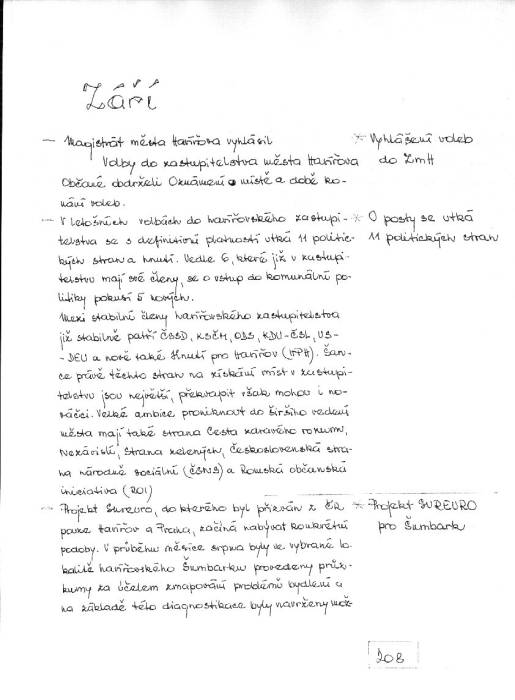 Září
— Magistrát města Havířova vyhlásil
Volby do zastupitelstva města Havířova
Občané obdrželi Oznámení o místě a době ko-
nání voleb.
* Vyhlášení voleb
do ZmH
— V letošních volbách do havířovského zastupi-
telstva se s definitivní platností utká 11 politic-
kých stran a hnutí. Vedle 6, které již v zastupi-
telstvu mají své členy, se o vstup do komunální po-
litiky pokusí 5 nových.
Mezi stabilní členy havířovského zastupitelstva
již stabilně patří ČSSD, KSČM, ODS, KDU-ČSL, US-
-DEU a nově také Hnutí pro Havířov (HPH). Šan-
ce právě těchto stran na získání míst v zastupi-
telstvu jsou největší, překvapit však mohou i no-
váčci. Velké ambice proniknout do širšího vedení
města mají také strana Cesta zdravého rozumu,
Nezávislí, Strana zelených, Československá stra-
na národně sociální (ČSNS) a Romská občanská
iniciativa (ROI)
* O posty se utká
11 politických stran
— Projekt Sureuro, do kterého byl přizván z ČR
pouze Havířov a Praha, začíná nabývat konkrétní
podoby. V průběhu měsíce srpna byly ve vybrané lo-
kalitě havířovského Šumbarku provedeny průz-
kumy za účelem zmapování problémů bydlení a
na základě této diagnostikace byly navrženy mož-
* Projekt SUREURO
pro Šumbark
208